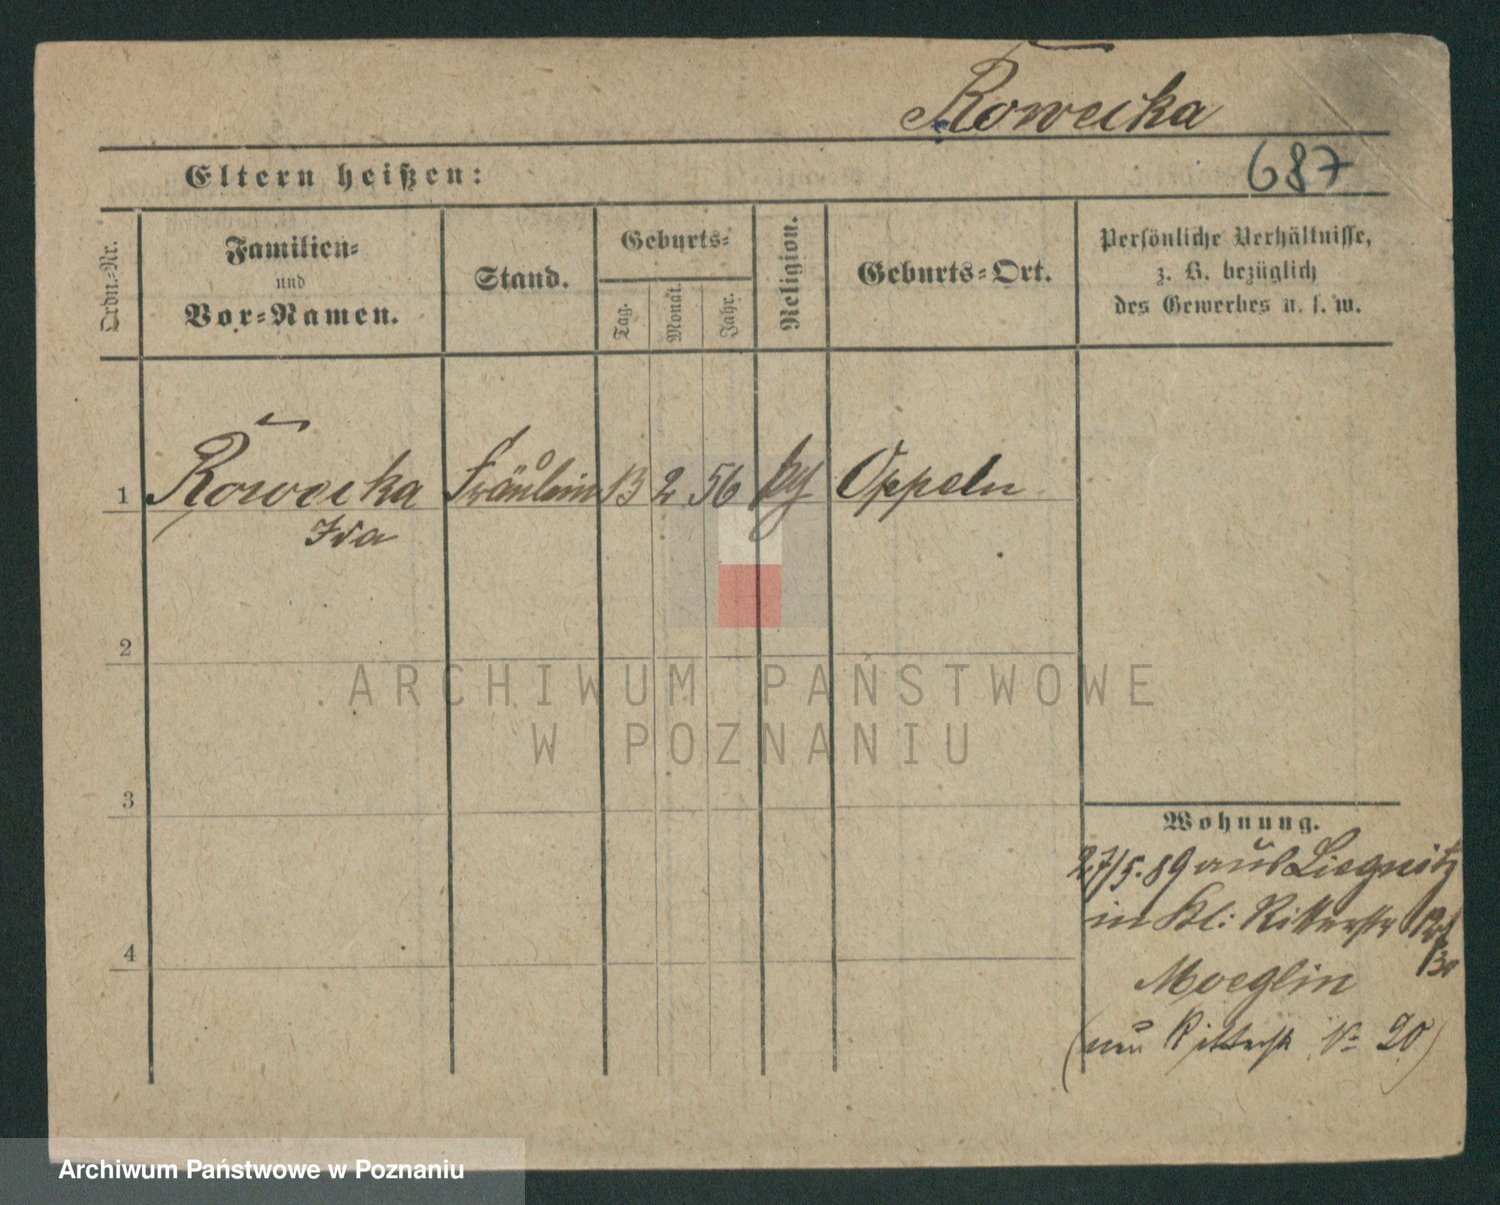 Rowecka
687
Eltern heißen:
Ordn.-Nr.
Familien-
und
Vor-Namen.
Stand.
Geburts-
Tag.
Monat.
Jahr.
Religion.
Geburts-Ort.
Persönliche Verhältnisse,
z. B. bezüglich
des Gewerbes u. s. w.
1 Rowecka Fräulein 13 2 56 Oppeln
Ida
2
3
4
Wohnung.
27/5.89 aus Liegnitz
in Kl: Ritterstr
Moeglin
(neu Ritterstr № 20)
ARCHIWUM PAŃSTWOWE
W POZNANIU
Archiwum Państwowe w Poznaniu